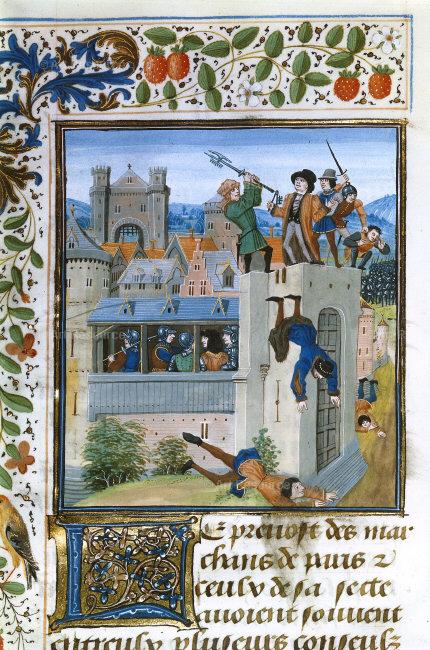 LE preuost des mar
chans de paris ⁊
ceulx de sa secte
auoient souuent
entreulx pluseurs conseulz